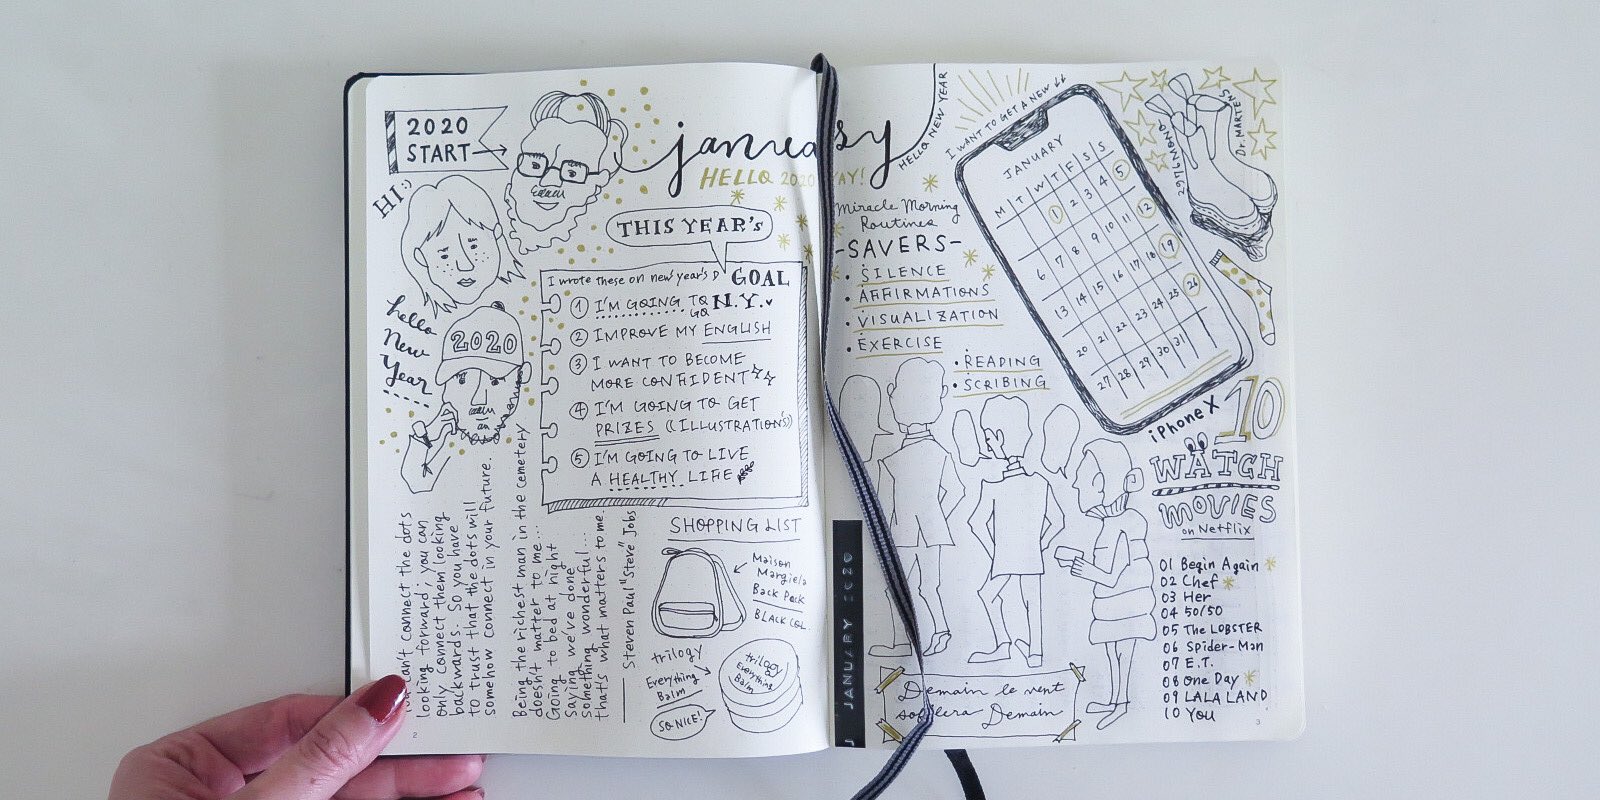 2020
START
HI :)
january
HELLO 2020 YAY!
hello
New
Year
2020
THIS YEAR's
GOAL
I wrote these on new year's D
① I'M GOING TO GO N.Y.
② IMPROVE MY ENGLISH
③ I WANT TO BECOME
MORE CONFIDENT
④ I'M GOING TO GET
PRIZES (ILLUSTRATIONS)
⑤ I'M GOING TO LIVE
A HEALTHY LIFE
can't connect the dots
looking forward; you can
only connect them looking
backwards. So you have
to trust that the dots will
somehow connect in your future.
Being the richest man in the cemetery
doesn't matter to me...
Going to bed at night
saying we've done
something wonderful...
that's what matters to me.
Steven Paul "Steve" Jobs
SHOPPING LIST
Maison
Margiela
Back Pack
BLACK COL.
trilogy
Everything
Balm
SO NICE!
trilogy
Everything
Balm
2
HELLO NEW YEAR
Miracle Morning
Routines
-SAVERS-
• SILENCE
• AFFIRMATIONS
• VISUALIZATION
• EXERCISE
• READING
• SCRIBING
I WANT TO GET A NEW ↓↓
JANUARY
M T W T F S S
1 2 3 4 5
6 7 8 9 10 11 12
13 14 15 16 17 18 19
20 21 22 23 24 25 26
27 28 29 30 31
iPhone X
Dr. MARTENS
10
WATCH
MOVIES
on Netflix
01 Begin Again
02 Chef
03 Her
04 50/50
05 The LOBSTER
06 Spider-Man
07 E.T.
08 One Day
09 LALA LAND
10 You
JANUARY 2020
Demain le vent
soufflera Demain
3